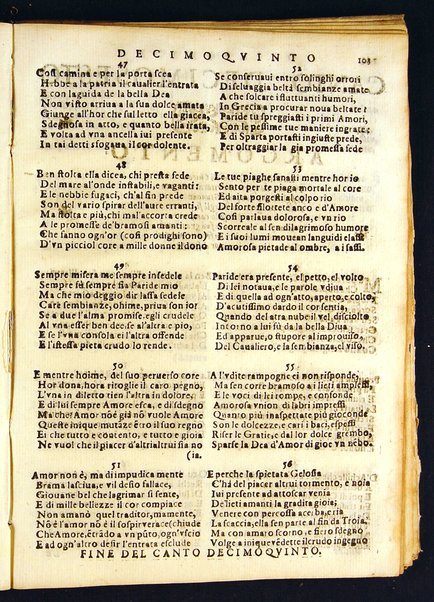 DECIMOQVINTO
108
47
Così camina e per la porta scea
Hebbe a la patria il caualier l'entrata
E con la guida de la bella Dea
Non visto arriua a la sua dolce amata
Giunge all'hor che sul letto ella giacea,
Sdegnosa in atto, e quanto bella irata,
E volta ad vna ancella iui presente
In tai detti sfogaua il cor dolente.
48
Ben stolta ella dicea, chi presta fede
Del mare al'onde instabili, e vaganti:
E le nebbie fugaci, ch'al fin prede
Son del vario spirar dell'aure erranti,
Ma stolta e più, chi mal'accorta crede
A le promesse de'bramosi amanti:
Che sanno ogn'or (così prodighi sono)
D'vn picciol core a mille donne il dono
49
Sempre misera me sempre infedele
Sempre fù sempre sia Paride mio
Ma che mio deggio dir lassa fedele
Carà sembianze, ohime, pria son io
Se a due l'alma promise, egli crudele
Al vna esser ben dee, se al'altra e pio,
E se l'vna consola ei l'altra offende
E istessa pieta crudo lo rende.
50
E mentre hoime, del suo peruerso core
Hor dona, hora ritoglie il caro pegno,
L'vna in diletto tien l'altra in dolore.
E di lui sempre Amore esca, e di sdegno
Ma che? Amor non è già nò vuole Amore
Queste inique mutāze e tro il suo regno
Ei che tutto e contento, e tutto e gioia
Ne vuol che il piacer d'altrui altrui sia no
(ia.
51
Amor non è, ma di impudica mente
Brama lasciua, e vil desio fallace,
Giouane bel che lagrimar si sente,
E di mille bellezze il cor compiace
Non amanò quel traditor, mamente,
Nō è l'amor nō il sospir verace schiude
Che Amore, ētrādo a vn pūto, ogn'vscio
E ad ogn'altro dentro l'entrata esclude
52
Se conseruaui entro solinghi orrori
Di seluaggia beltà sembianze amate
A che solcare i fluttuanti humori,
In Grecia a procurar noua beltate?
Paride tu spreggiasti i primi Amori,
Con le pessime tue maniere ingrate:
E di Sparta portasti ingiuste prede,
Per oltraggiar la gia promessa fede
53
Le tue piaghe sanasti mentre hor io
Sento per te piaga mortale al core
Ed aita porgesti al colpo rio
Del forte filottete arco e d'Amore
Così parlaua dolorosa, e vn rio
Scorreale al sen di lagrimoso humore
E i suoi lumi mouean languidi e lassi
Amorosa pietade al'ombre, a i sassi.
54
Paride era presente, el petto, el volto
Di lei notaua, e le parole vdiua
E di quella ad ogn'atto, aperto, e colto,
D'acutissimo dardo il cor sentia,
Quando del atra nube il vel disciolto
Intorno a lui sù da la bella Diua
Ed apparue, e stupore al improuiso
Del Caualiero, e la sembianza, el viso.
55
A l'vdite rampogne ei non risponde,
Ma sen corre bramoso a i lieti amplessi
E le voci di lei rompe, e confonde,
Amorosa vnion di labri impressi
Quanto più inaspettate più gioconde
Son le dolcezze, e cari i baci, espessi,
Riser le Gratie, e dal lor dolce grembo,
Sparse la Dea d'Amor di gioe vn nebo.
56
E perche la spietata Gelosia
C'hà del piacer altrui tormento, e noia
Iui presente ad attoscar venia
De lieti amanti la gradita gioia;
Venere con percossa acerba, e ria
La scaccia, ella sen parte al fin da Troia,
Ma con amaro scorno, e fiero sdegno
Volge a inique vēdette il crudo ingegno
FINE DEL CANTO DECIMOQVINTO.